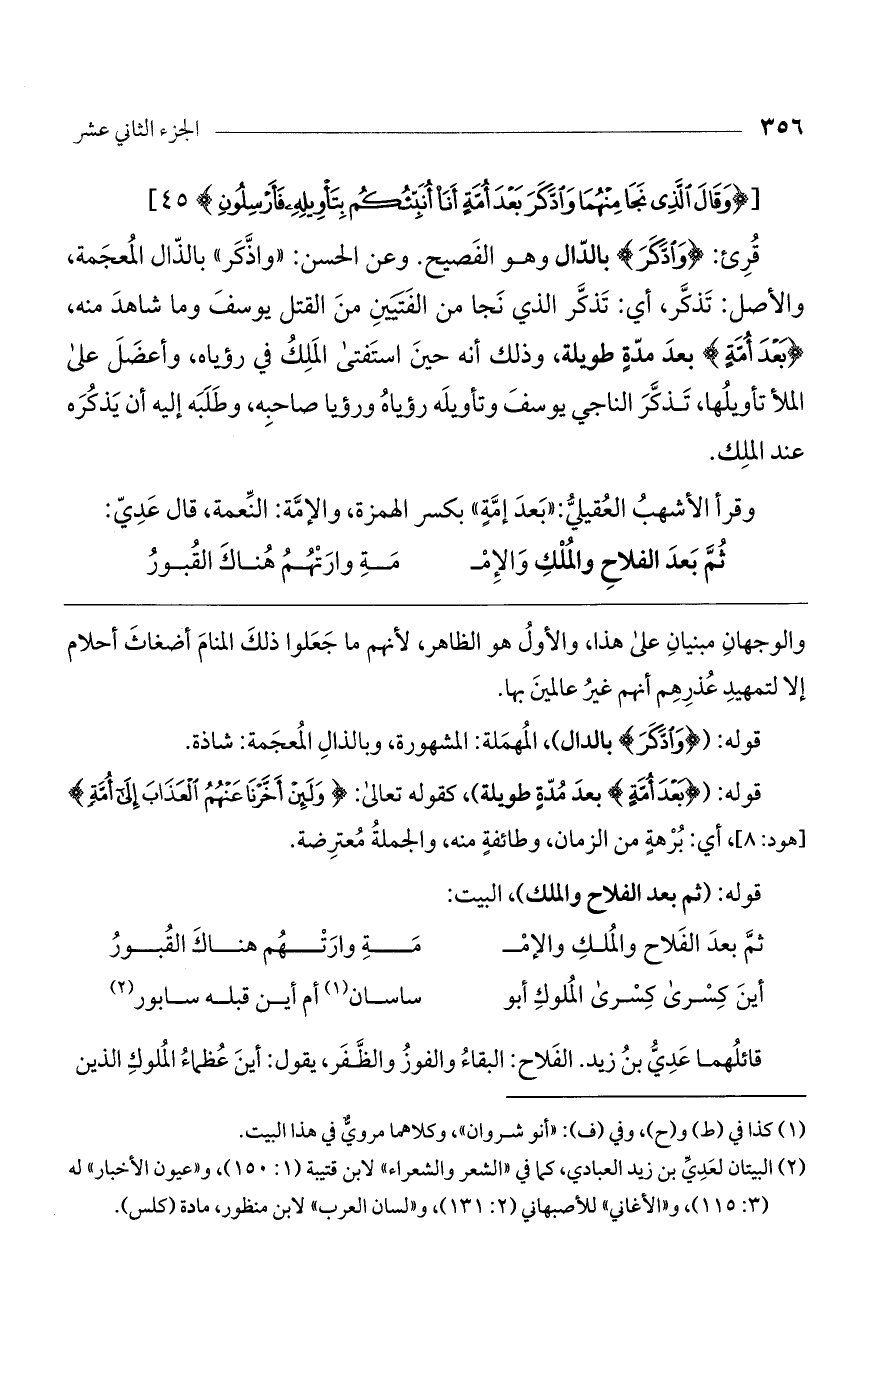 ٣٥٦ الجزء الثاني عشر
[﴿وَقَالَ ٱلَّذِى نَجَا مِنْهُمَا وَٱدَّكَرَ بَعْدَ أُمَّةٍ أَنَا۠ أُنَبِّئُكُم بِتَأْوِيلِهِۦ فَأَرْسِلُونِ﴾ ٤٥]
قُرِئ: ﴿وَٱدَّكَرَ﴾ بالدّال وهو الفَصيح. وعن الحسن: «واذَّكَر» بالذّال المُعجَمة،
والأصل: تَذكَّر، أي: تَذكَّر الذي نَجا من الفَتَيَينِ منَ القتل يوسفَ وما شاهدَ منه،
﴿بَعْدَ أُمَّةٍ﴾ بعدَ مدّةٍ طويلة، وذلك أنه حينَ استَفتىٰ المَلِكُ في رؤياه، وأعضَلَ علىٰ
الملأ تأويلُها، تَذكَّرَ الناجي يوسفَ وتأويلَه رؤياهُ ورؤيا صاحبِه، وطَلَبَه إليه أن يَذكُرَه
عند الملِك.
وقرأ الأشهبُ العُقيليُّ: «بَعدَ إمَّةٍ» بكسر الهمزة، والإمَّة: النِّعمة، قال عَدِيّ:
ثُمَّ بَعدَ الفلاحِ والمُلْكِ وَالإِمْـ ـمَـةِ وارَتْهُمُ هُنـاكَ القُبـورُ
والوجهانِ مبنيانِ علىٰ هذا، والأولُ هو الظاهر، لأنهم ما جَعَلوا ذلكَ المنامَ أضغاثَ أحلام
إلا لتمهيدِ عُذرِهِم أنهم غيرُ عالمينَ بها.
قوله: (﴿وَٱدَّكَرَ﴾ بالدال)، المُهمَلة: المشهورة، وبالذالِ المُعجَمة: شاذة.
قوله: (﴿بَعْدَ أُمَّةٍ﴾ بعدَ مُدّةٍ طويلة)، كقوله تعالىٰ: ﴿وَلَئِنْ أَخَّرْنَا عَنْهُمُ ٱلْعَذَابَ إِلَىٰٓ أُمَّةٍ﴾
[هود: ٨]، أي: بُرْهةٍ من الزمان، وطائفةٍ منه، والجملةُ مُعترِضة.
قوله: (ثم بعد الفلاح والملك)، البيت:
ثمَّ بعدَ الفَلاحِ والمُلـكِ والإمْـ ـمَـةِ وارَتْـهُم هنـاكَ القُبـورُ
أينَ كِسْـرىٰ كِسْـرىٰ المُلوكِ أبو ساسـان(١) أم أيـن قبلـه سـابور(٢)
قائلُهما عَدِيُّ بنُ زيد. الفَلاح: البقاءُ والفوزُ والظَّفَر، يقول: أينَ عُظماءُ المُلوكِ الذين
(١) كذا في (ط) و(ح)، وفي (ف): «أنو شروان»، وكلاهما مرويٌّ في هذا البيت.
(٢) البيتان لعَدِيِّ بن زيد العبادي، كما في «الشعر والشعراء» لابن قتيبة (١: ١٥٠)، و«عيون الأخبار» له
(٣: ١١٥)، و«الأغاني» للأصبهاني (٢: ١٣١)، و«لسان العرب» لابن منظور، مادة (كلس).